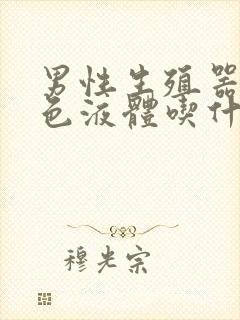 男性生殖器
色液體喫什
穆光宗